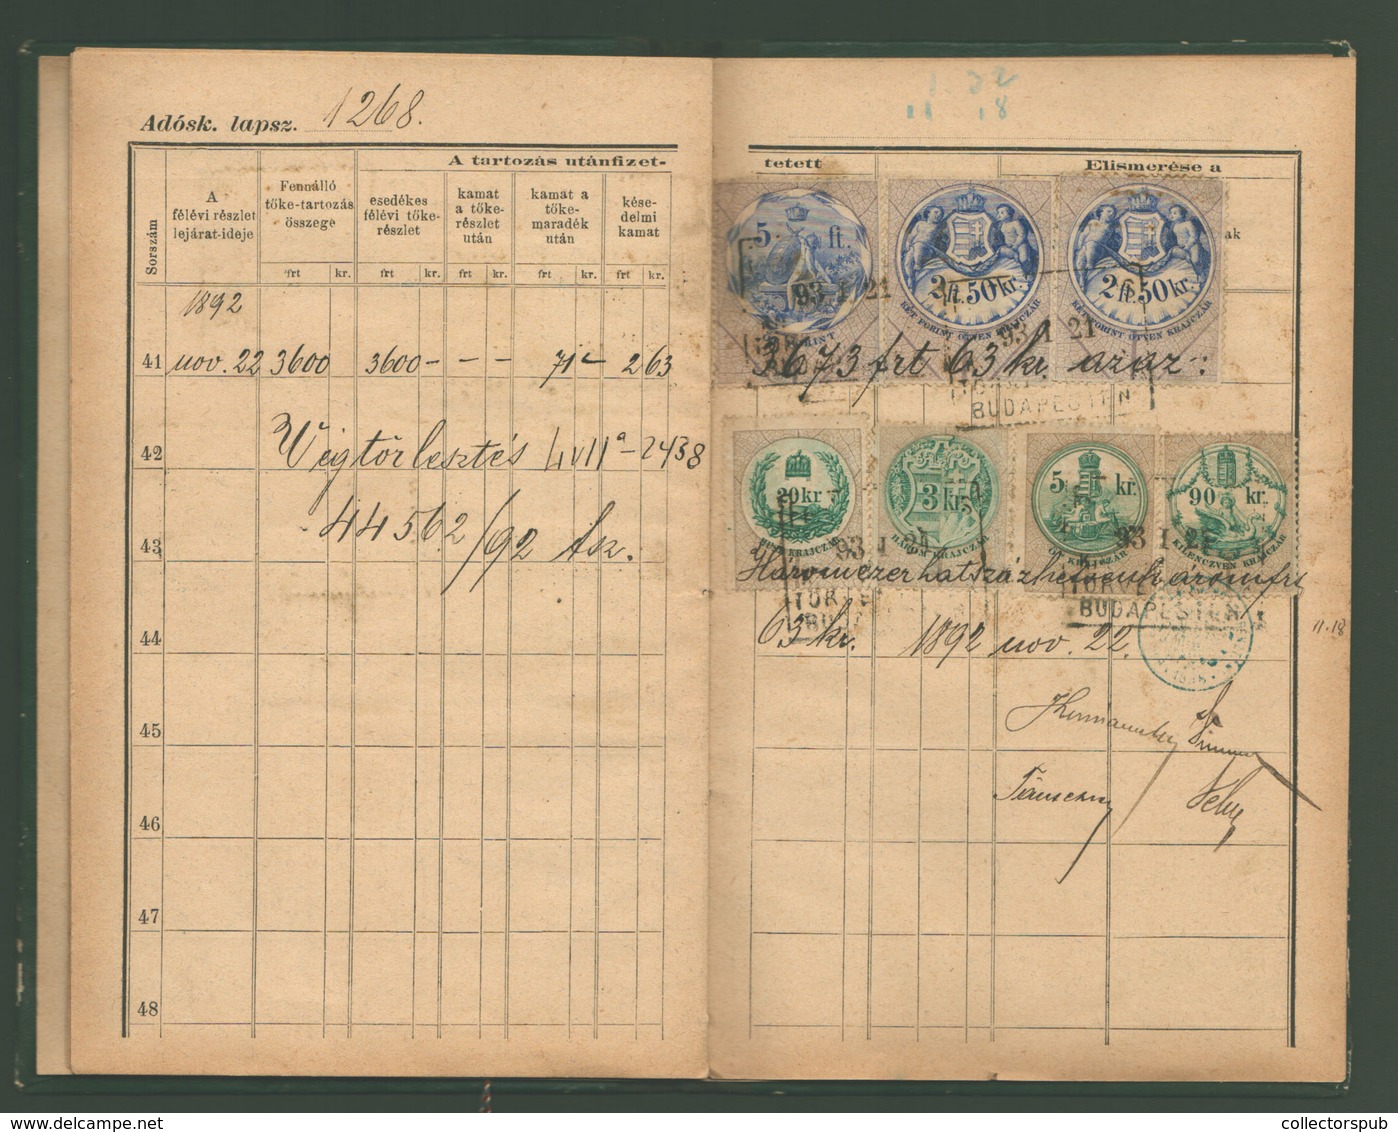 Adósk. lapsz. 1268.
A tartozás utánfizet-
tetett
Elismerése a
Sorszám
A félévi részlet lejárat-ideje
Fennálló tőke-tartozás összege
esedékes félévi tőke-részlet
kamat a tőke-részlet után
kamat a tőke-maradék után
kése-delmi kamat
frt kr. frt kr. frt kr. frt kr. frt kr.
ak
1892
41 nov. 22 3600 3600 – – – 71 – 2 63
42 Végtörlesztés
43 44562/92
44
45
46
47
48
5 ft.
2 ft. 50 kr.
KÉT FORINT ÖTVEN KRAJCZÁR
2 ft. 50 kr.
KÉT FORINT ÖTVEN KRAJCZÁR
93 1 21
93 1 21
3673 frt 63 kr. azaz:
BUDAPESTEN
20 kr
HUSZ KRAJCZÁR
3 kr.
HÁROM KRAJCZÁR
5 kr.
ÖT KRAJCZÁR
90 kr.
KILENCZVEN KRAJCZÁR
93 1 21
93 1 21
Háromezerhatszázhetvenháromfrt
BUDAPESTEN
63 kr. 1892 nov. 22.
11.18
collectorspub